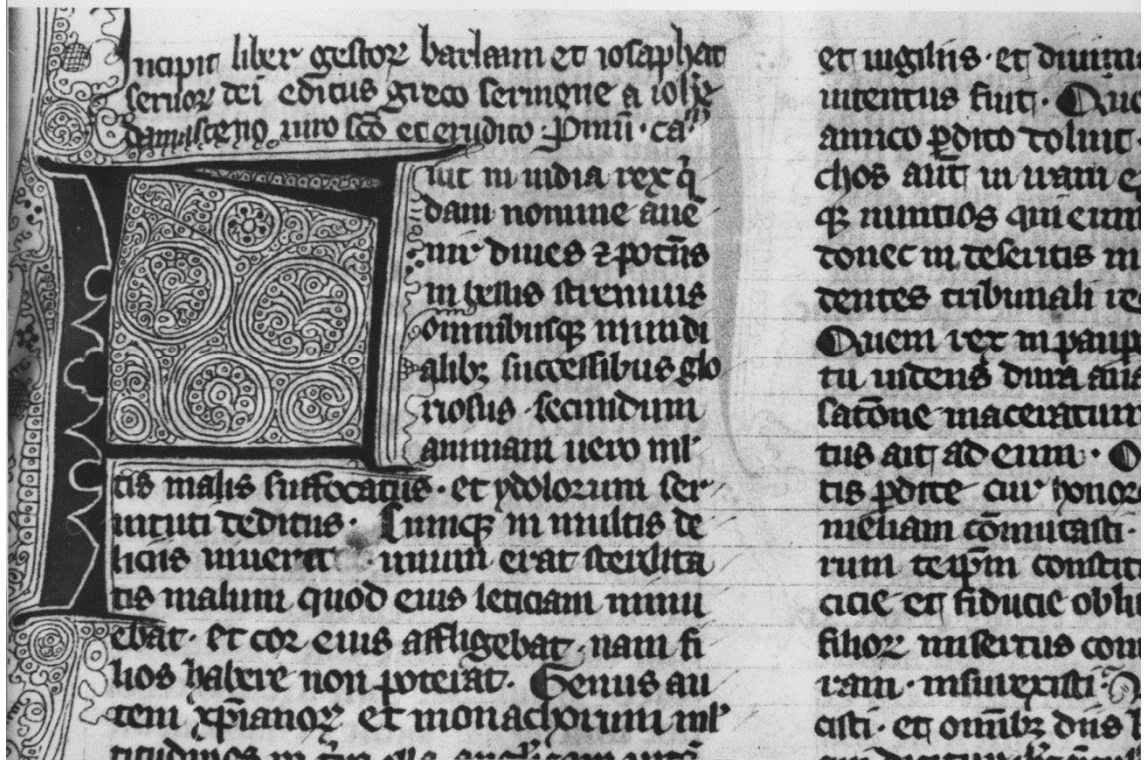 Incipit liber gestoꝝ barlaam et iosaphat
seruoꝝ dei editus greco sermone a ioħe
damasceno uiro sc̃o et erudito · Pͥmũ · caᵐ
Fuit in india rex q̃
dam nomine aue
nir diues ⁊ potẽs
in bellis strenuus
omnibusqꝫ mundi
alibꝫ successibus glo
riosus · secundum
animam uero ml̕
tis malis suffocatus · et ydoloꝛum ser
uituti deditus · Cumqꝫ in multis de
liciis uiueret unum erat sterilita
tis malum quod eius leticiam minu
ebat · et cor eius affligebat · nam fi
lios habere non poterat · Genus au
tem xp̃ianoꝝ et monachorum ml̕
titudines
et uigiliis · et diuini
intentus fuit · Que
amico ꝑdito doluit ·
chos aut̃ in iram
qꝫ nuntios qui eum
donec in desertis in
dentes tribunali re
Quem rex in pauꝑ
tu uidens dura
satõne maceratum
tus ait ad eum ·
tis ꝑdite cur honor
meliam cõmutasti ·
rum teip̃m constit
cicie et fiducie obli
filioꝝ misertus con
ram · insurexisti ·
cisti · et omĩbꝫ dñs